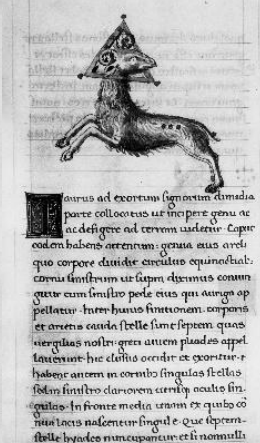 Taurus ad exortum signorum dimidia
parte collocatus ut incipere genu ac
ac defigere ad terram uidetur. Caput
eodem habens attentum. genua eius a reli
quo corpore diuidit circulus equinoctial.
cornu sinistrum ut supra diximus coniun
gitur cum sinistro pede eius qui auriga ap
pellatur. Inter huius finitionem corporis
et arietis cauda stelle sunt septem quas
uergilias nostri greci autem pleades appel
lauerunt hic clasius occidit et exoritur.
habent autem in cornibus singulas stellas
sed in sinistro clariorem uterisque oculis sin
gulas. In fronte media unam et quibus co
nua locis nascuntur singule. Que septem
stelle hyades nuncupantur etsi nonnulli